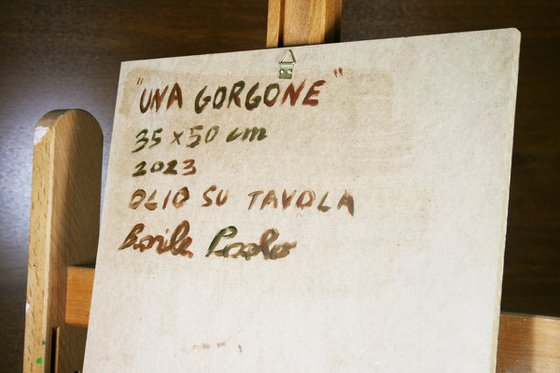 "UNA GORGONE"
35 x 50 cm
2023
OLIO SU TAVOLA
Barile Paolo